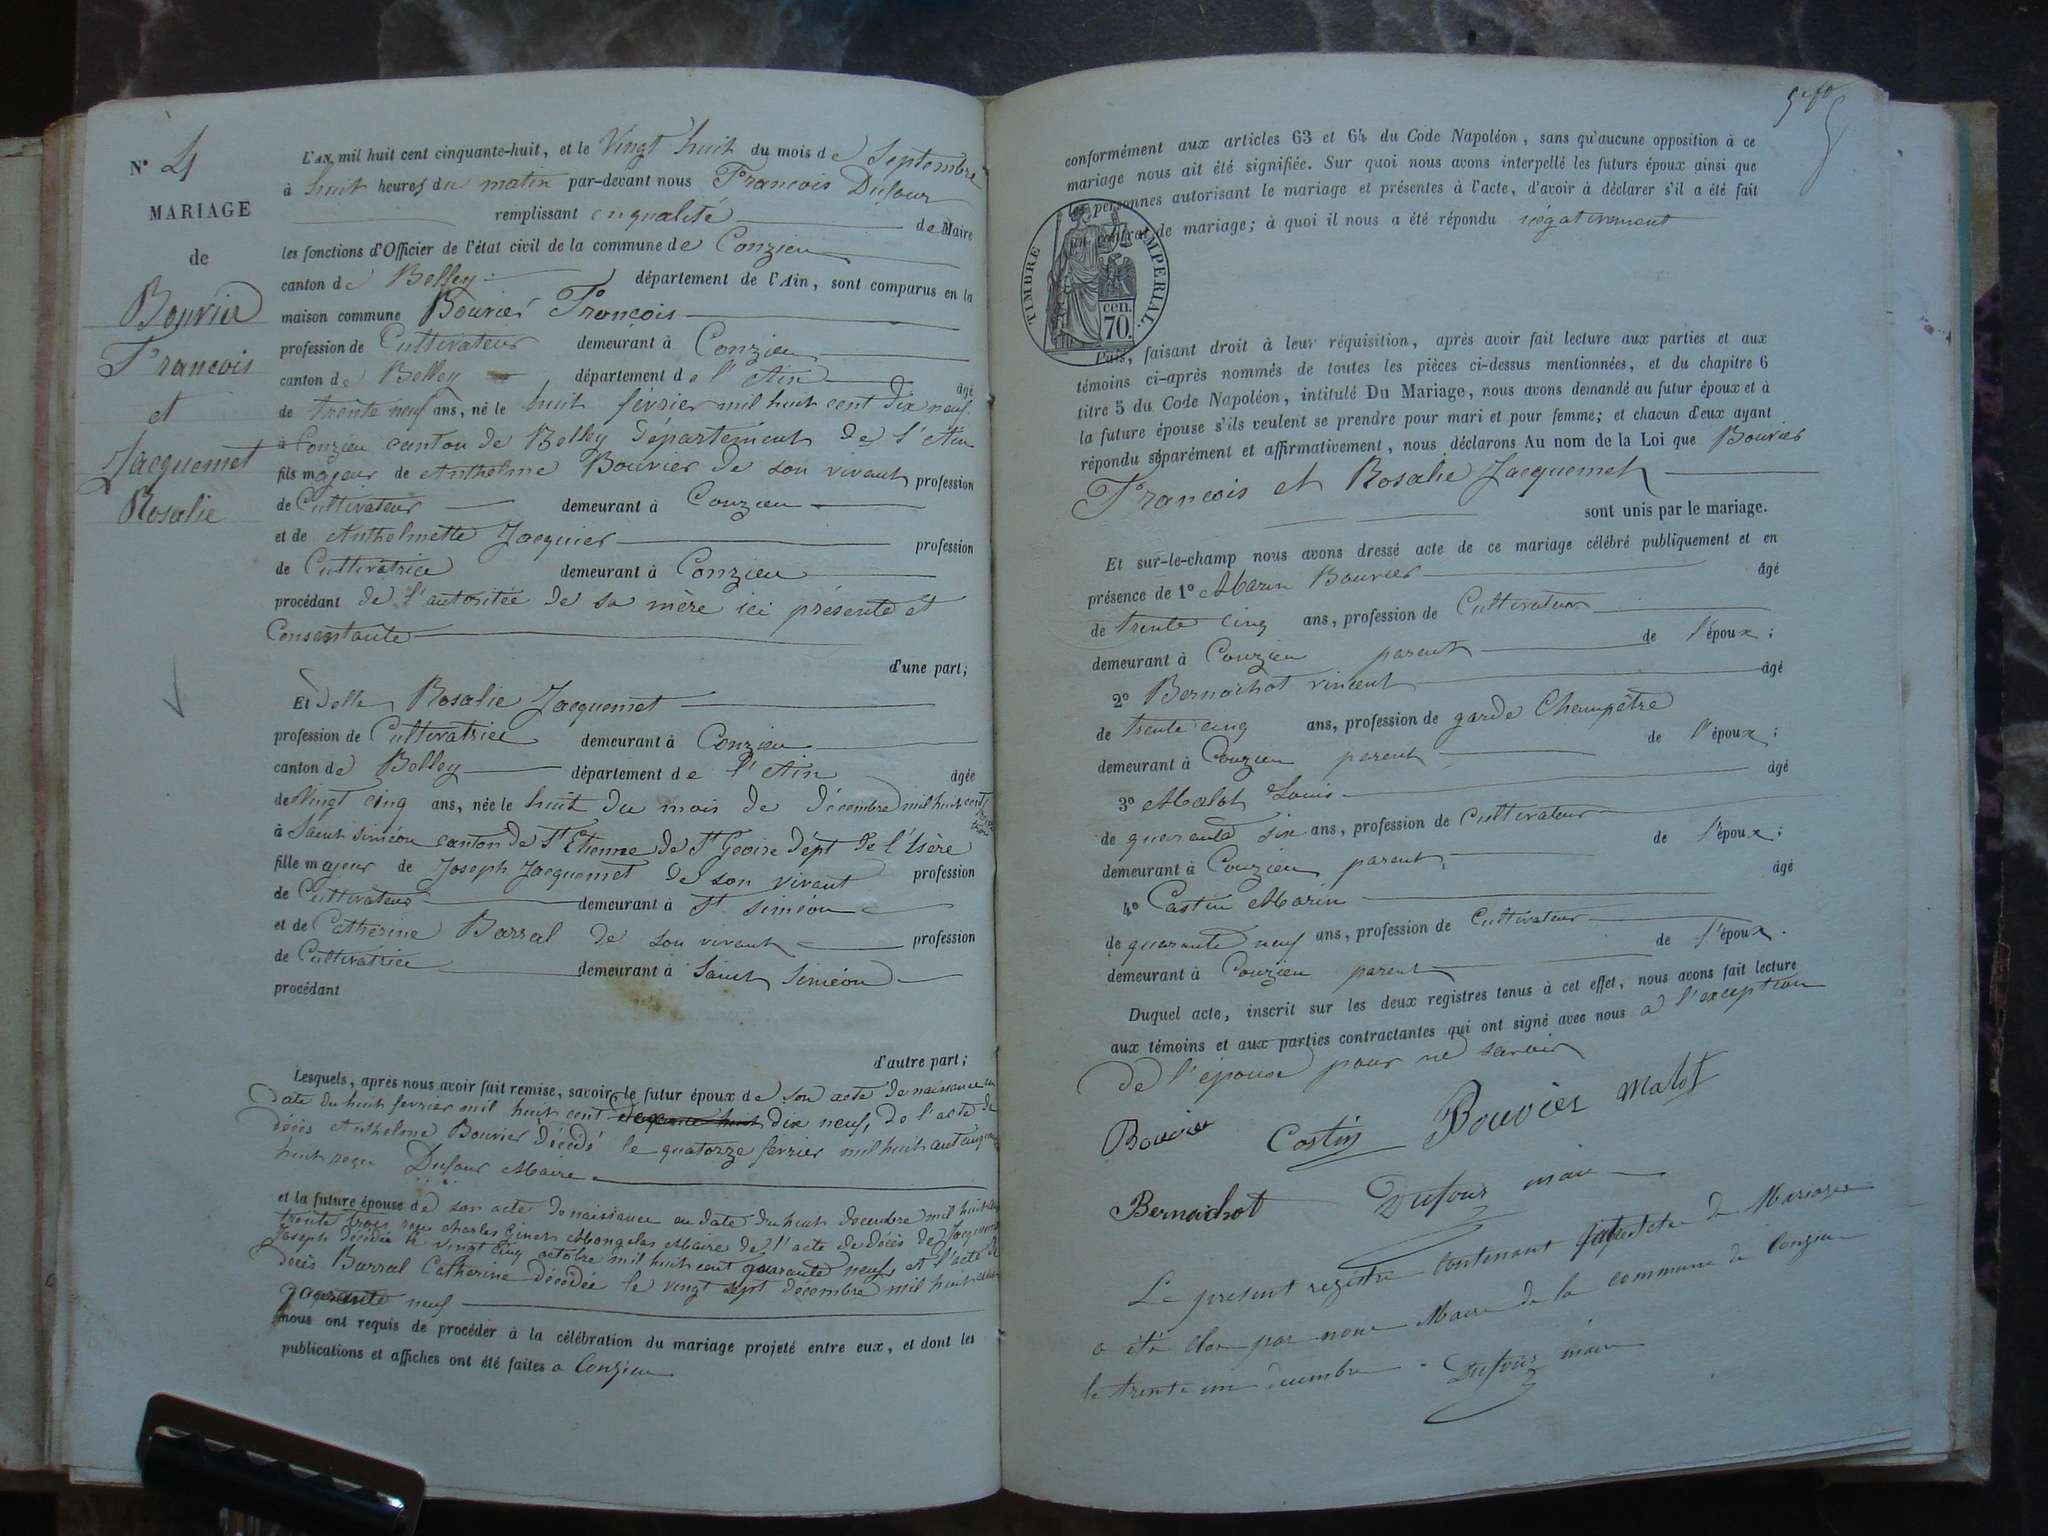 N° 4
MARIAGE
de
Bouvier
François
et
Jacquemet
Rosalie
L'AN mil huit cent cinquante-huit, et le Vingt huit du mois de Septembre
à huit heures du matin par-devant nous François Dufour
remplissant en qualité de Maire
les fonctions d'Officier de l'état civil de la commune de Conzieu
canton de Belley département de l'Ain, sont comparus en la
maison commune Bouvier François
profession de Cultivateur demeurant à Conzieu
canton de Belley département de l'Ain âgé
de trente neuf ans, né le huit fevrier mil huit cent dix neuf
à Conzieu canton de Belley Département de l'Ain
fils majeur de Anthelme Bouvier de son vivant profession
de Cultivateur demeurant à Conzieu
et de Anthelmette Jacquier profession
de Cultivatrice demeurant à Conzieu
procédant de l'autoritée de sa mère ici présente et
Consentante
d'une part;
Et Delle Rosalie Jacquemet
profession de Cultivatrice demeurant à Conzieu
canton de Belley département de l'Ain âgée
de Vingt cinq ans, née le huit du mois de décembre mil huit cent trente trois
à Saint Siméon canton de St Etienne de St Geoire Dépt de l'Isère
fille majeur de Joseph Jacquemet de son vivant profession
de Cultivateur demeurant à St Siméon
et de Catherine Barral de son vivant profession
de Cultivatrice demeurant à Saint Siméon
procédant
d'autre part;
Lesquels, après nous avoir fait remise, savoir le futur époux de son acte de naissance en
date du huit fevrier mil huit cent dix neuf, de l'acte de
décès Anthelme Bouvier décédé le quatorze février mil huit cent cinquante
huit reçu Dufour Maire
et la future épouse de son acte de naissance en date du huit decembre mil huit cent
trente trois reçu Charles Ginet Mongelas Maire de l'acte de décès de Jacquemet
Joseph décédé le vingt cinq octobre mil huit cent quarante neuf et l'acte de
décès Barral Catherine décédée le vingt sept décembre mil huit cent
quarante neuf
nous ont requis de procéder à la célébration du mariage projeté entre eux, et dont les
publications et affiches ont été faites a Conzieu
5e fo
conformément aux articles 63 et 64 du Code Napoléon, sans qu'aucune opposition à ce
mariage nous ait été signifiée. Sur quoi nous avons interpellé les futurs époux ainsi que
les personnes autorisant le mariage et présentes à l'acte, d'avoir à déclarer s'il a été fait
un contrat de mariage; à quoi il nous a été répondu négativement
TIMBRE IMPERIAL.
70 cen.
Puis, faisant droit à leur réquisition, après avoir fait lecture aux parties et aux
témoins ci-après nommés de toutes les pièces ci-dessus mentionnées, et du chapitre 6
titre 5 du Code Napoléon, intitulé Du Mariage, nous avons demandé au futur époux et à
la future épouse s'ils veulent se prendre pour mari et pour femme; et chacun d'eux ayant
répondu séparément et affirmativement, nous déclarons Au nom de la Loi que Bouvier
François et Rosalie Jacquemet
sont unis par le mariage.
Et sur-le-champ nous avons dressé acte de ce mariage célébré publiquement et en
présence de 1° Marin Bouvier âgé
de trente cinq ans, profession de Cultivateur
demeurant à Conzieu parent de l'époux;
2° Bernachot Vincent âgé
de trente cinq ans, profession de garde Champêtre
demeurant à Conzieu parent de l'époux;
3° Malot Louis âgé
de quarante six ans, profession de Cultivateur
demeurant à Conzieu parent de l'époux;
4° Castin Marin âgé
de quarante neuf ans, profession de Cultivateur
demeurant à Conzieu parent de l'époux.
Duquel acte, inscrit sur les deux registres tenus à cet effet, nous avons fait lecture
aux témoins et aux parties contractantes qui ont signé avec nous a l'exception
De l'épouse pour ne savoir
Bouvier Castin Bouvier Malot
Bernachot Dufour maire
Le present registre Contenant quatre actes de Mariages
a été clos par nous Maire de la commune de Conzieu
le trente un decembre. Dufour maire